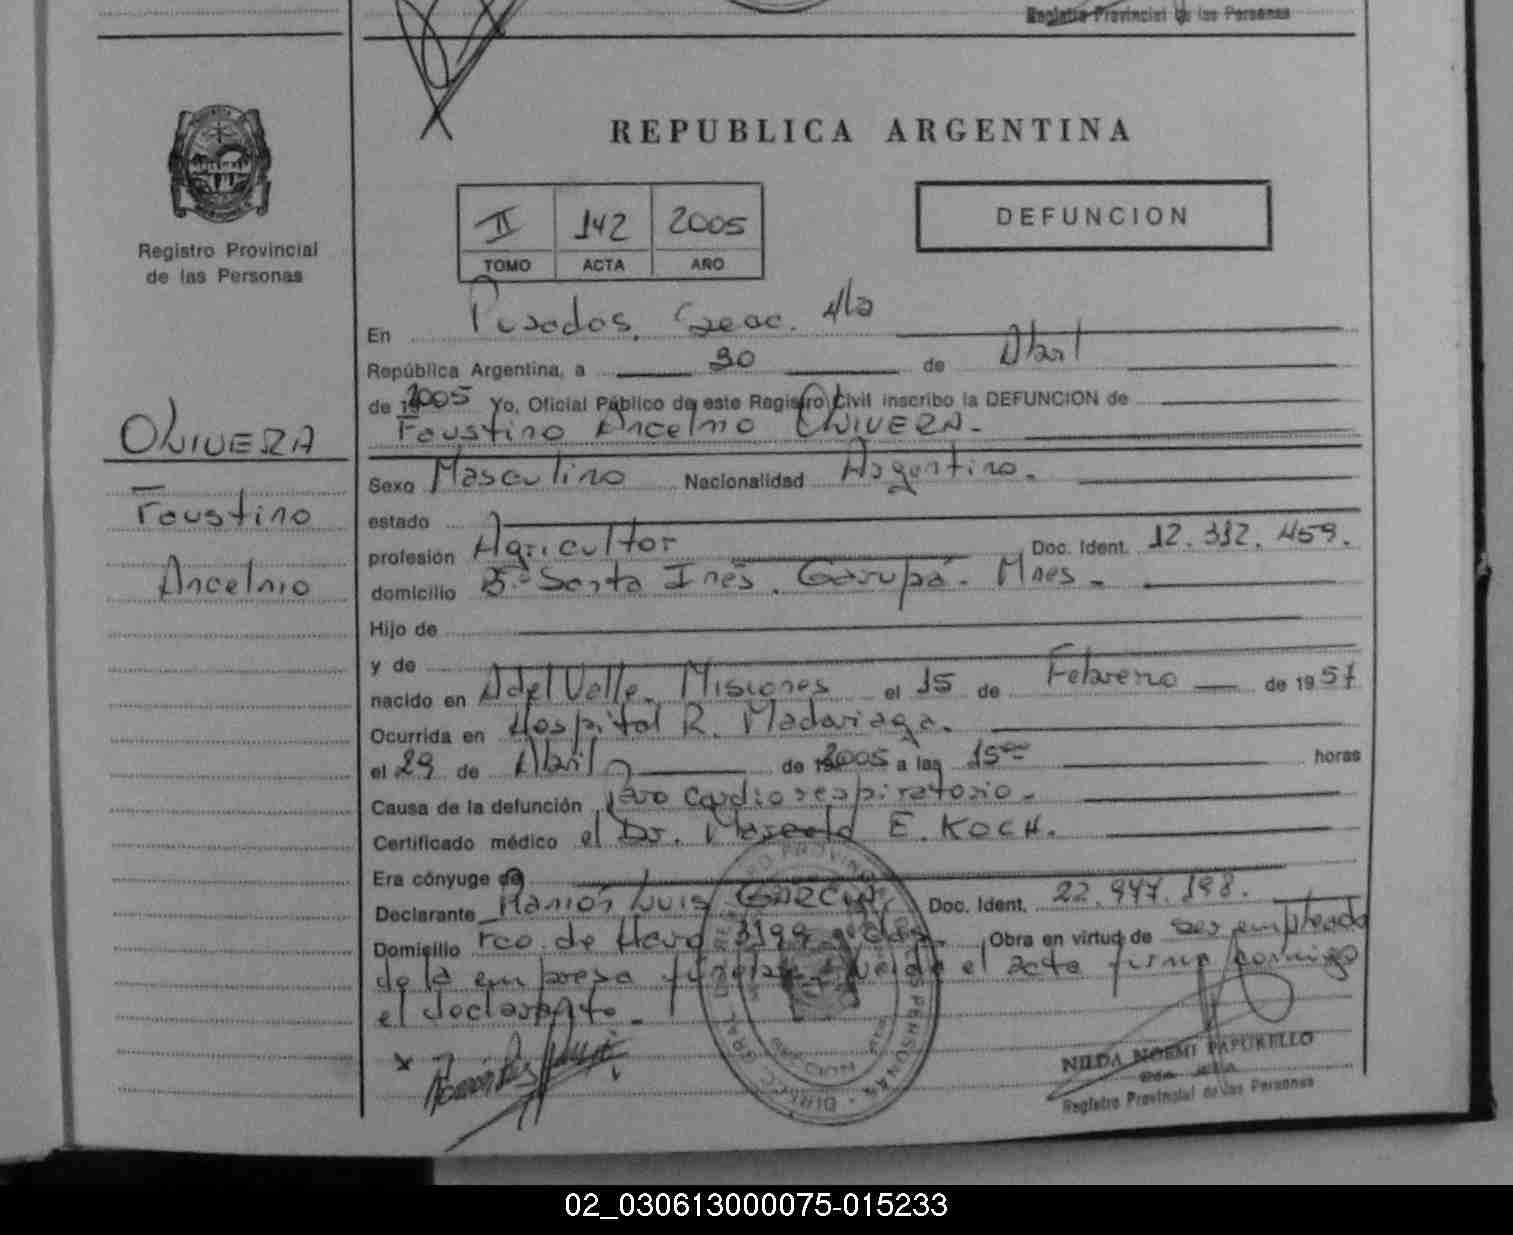 Registro Provincial de las Personas
REPUBLICA ARGENTINA
II 142 2005
TOMO ACTA AÑO
DEFUNCION
Registro Provincial
de las Personas
OLIVERA
Faustino
Ancelmo
En Posadas,
República Argentina, a 30 de Abril
de 2005 Yo, Oficial Público de este Registro Civil inscribo la DEFUNCION de
Faustino Ancelmo OLIVERA.
Sexo Masculino Nacionalidad Argentino.
estado
profesión Agricultor Doc. Ident. 12.312.459.
domicilio Bº Santa Inés. Garupá. Mnes.
Hijo de
y de
nacido en Del Valle. Misiones el 15 de Febrero de 1957
Ocurrida en Hospital R. Madariaga.
el 29 de Abril de 2005 a las 15 horas
Causa de la defunción Paro cardiorespiratorio.
Certificado médico el Dr. E. KOCH.
Era cónyuge de
Declarante Ramón Luis GARCIA. Doc. Ident. 22.947.198.
Domicilio Fco. de Haro 3199 Obra en virtud de ser empleado
de la empresa el acta firma conmigo
el declarante.
NILDA NOEMI PAPURELLO
Registro Provincial de las Personas
02_030613000075-015233